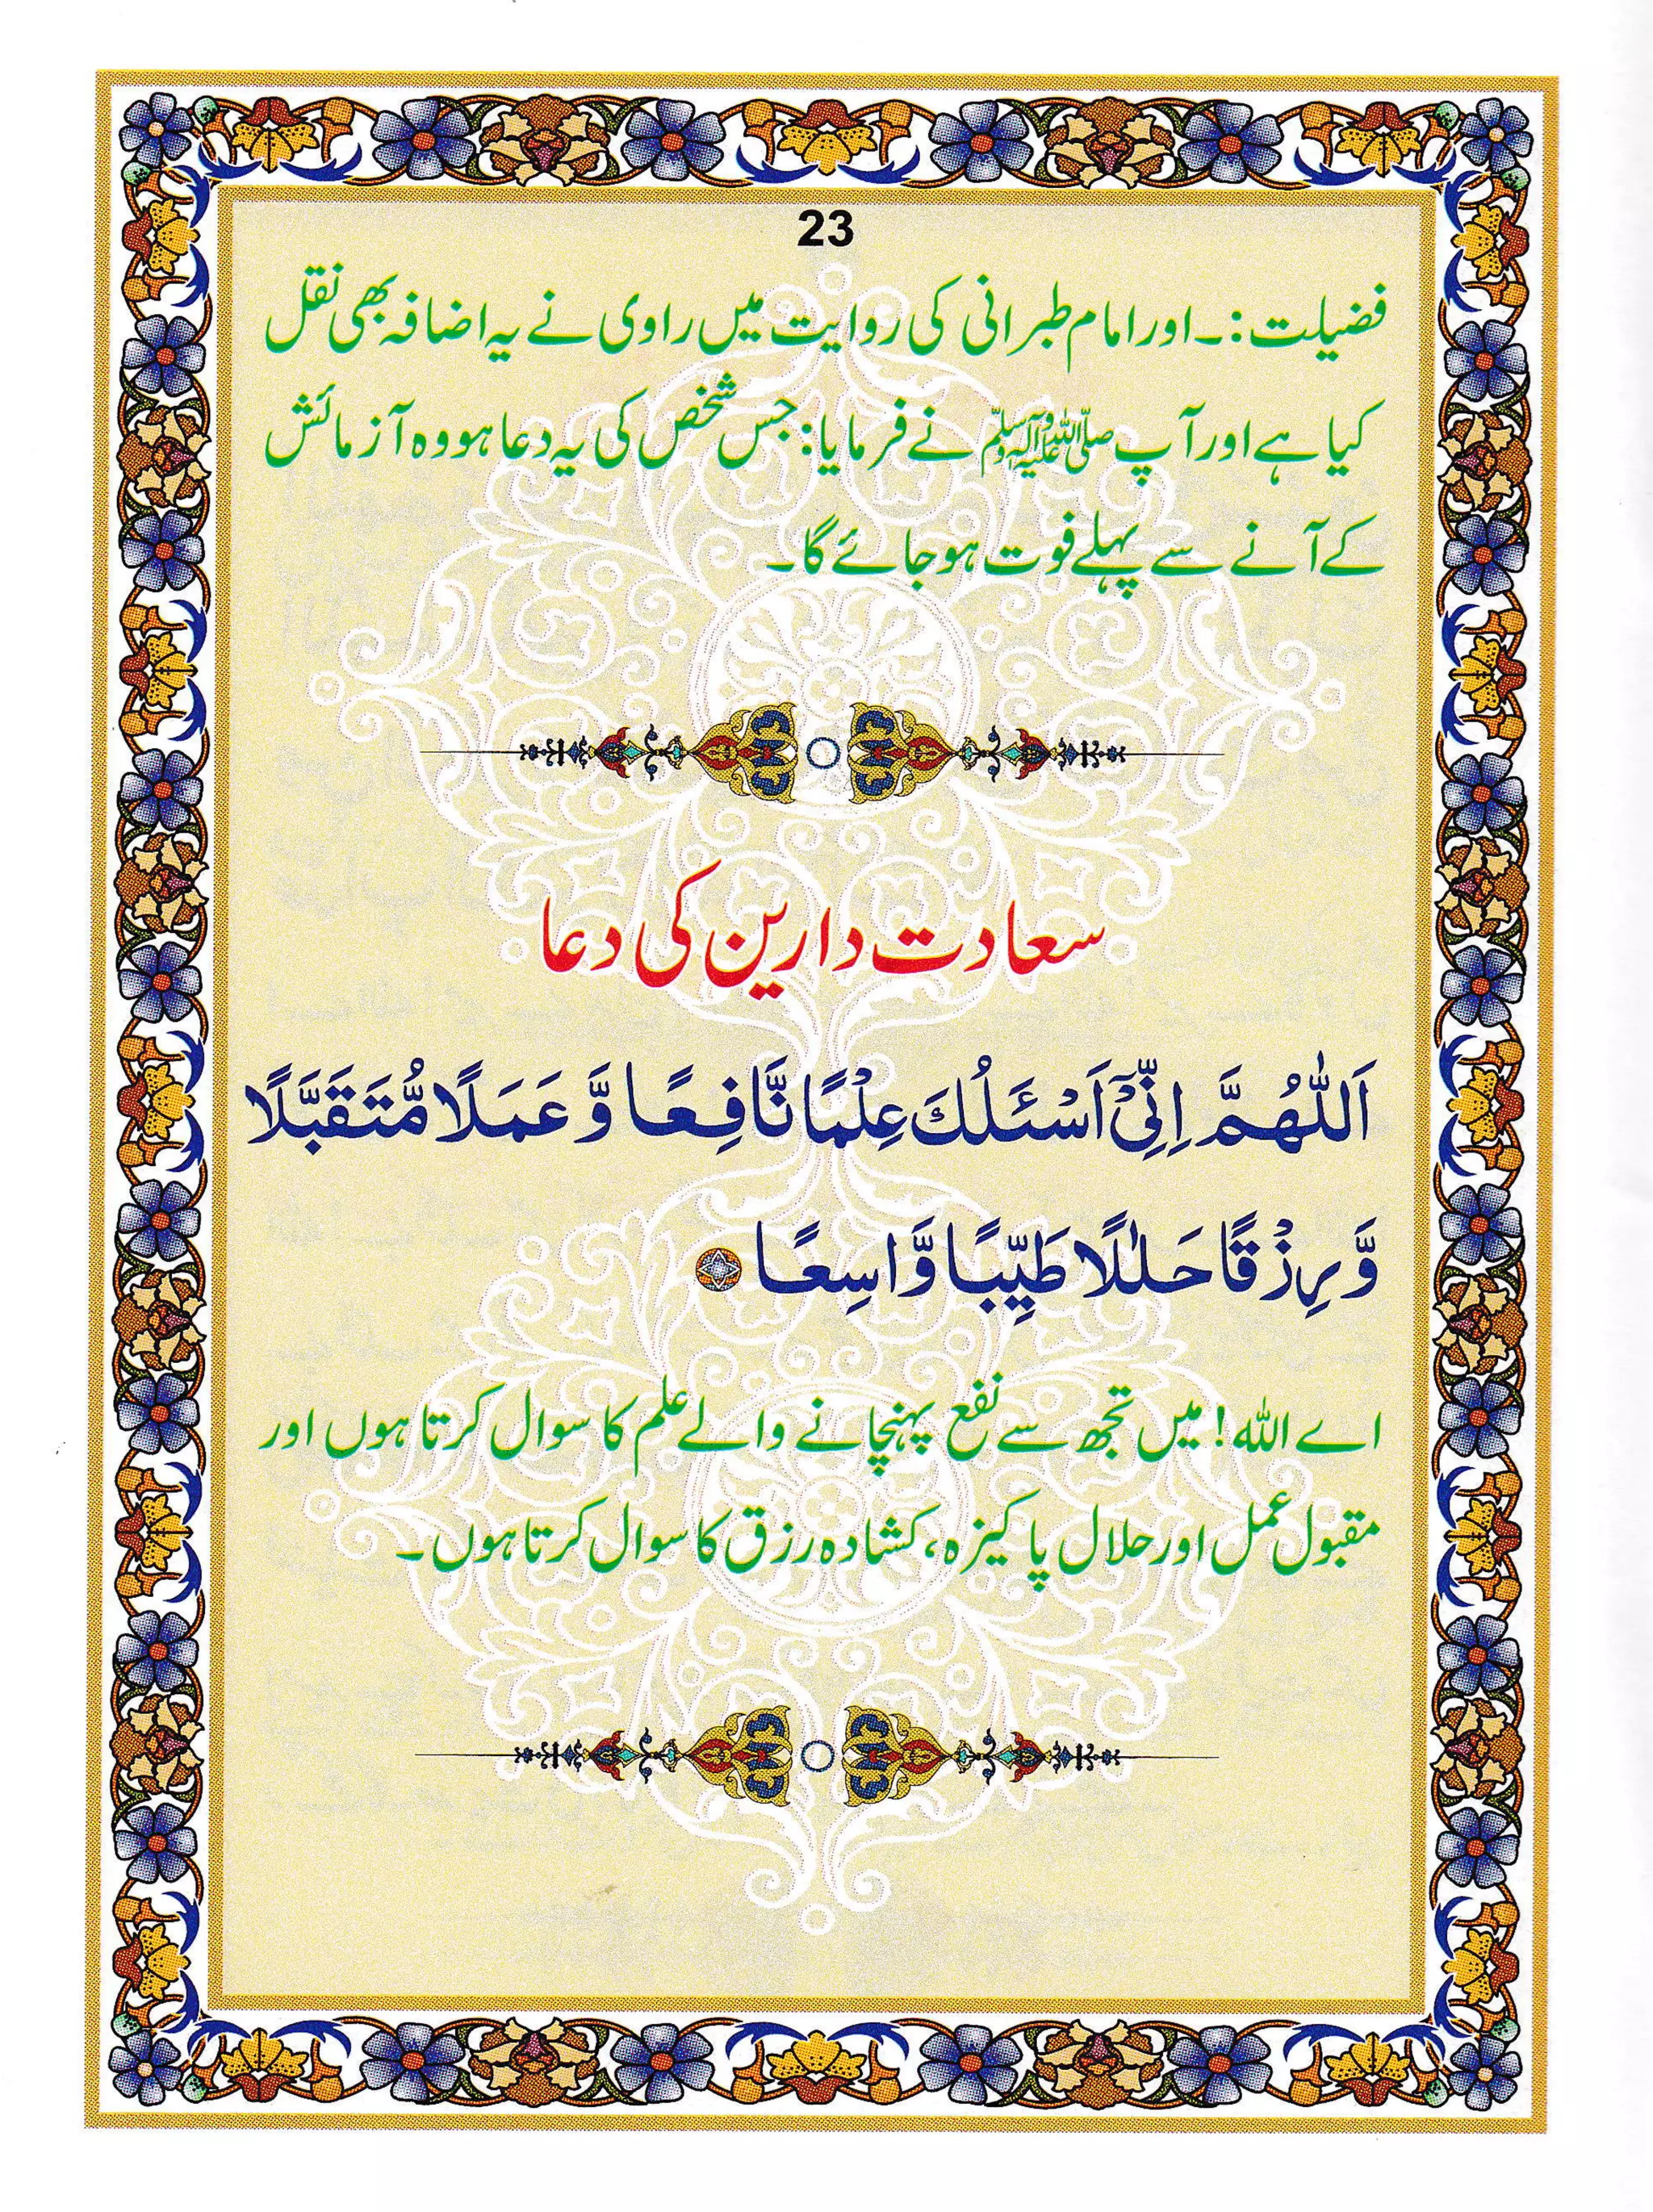 23
فضیلت:۔اور امام طبرانی کی روایت میں راوی نے یہ اضافہ بھی نقل
کیا ہے اور آپ صلی اللہ علیہ وآلہ وسلم نے فرمایا: جس شخص کی یہ دعا ہو وہ آزمائش
کے آنے سے پہلے فوت ہو جائے گا۔
سعادت دارین کی دعا
اَللّٰهُمَّ اِنِّيْٓ اَسْئَلُكَ عِلْمًا نَّافِعًا وَّ عَمَلًا مُّتَقَبَّلًا
وَّ رِزْقًا حَلٰلًا طَيِّبًا وَّاسِعًا
اے اللہ! میں تجھ سے نفع پہنچانے والے علم کا سوال کرتا ہوں اور
مقبول عمل اور حلال پاکیزہ، کشادہ رزق کا سوال کرتا ہوں۔